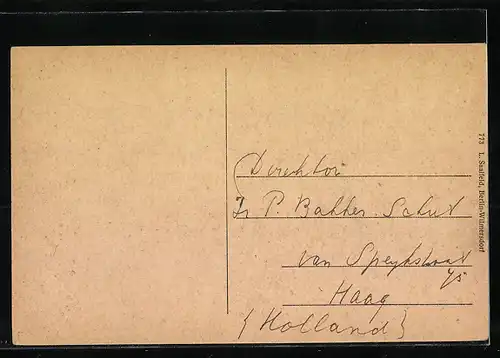 Direktor
Ir P. Bakker Schut
van Speykstraat
45
Haag
{Holland}
773 L. Saalfeld, Berlin-Wilmersdorf